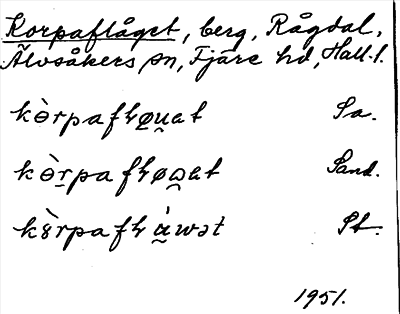 Korpaflåget, berg, Rågdal,
Älvsåkers sn, Fjäre hd, Hall. l.
kò̤rpafꞎøu̯at Sa.
kò̤rpafꞎøω̯at Sand.
kȣ̀rpafꞎὰ̯wət St.
1951.